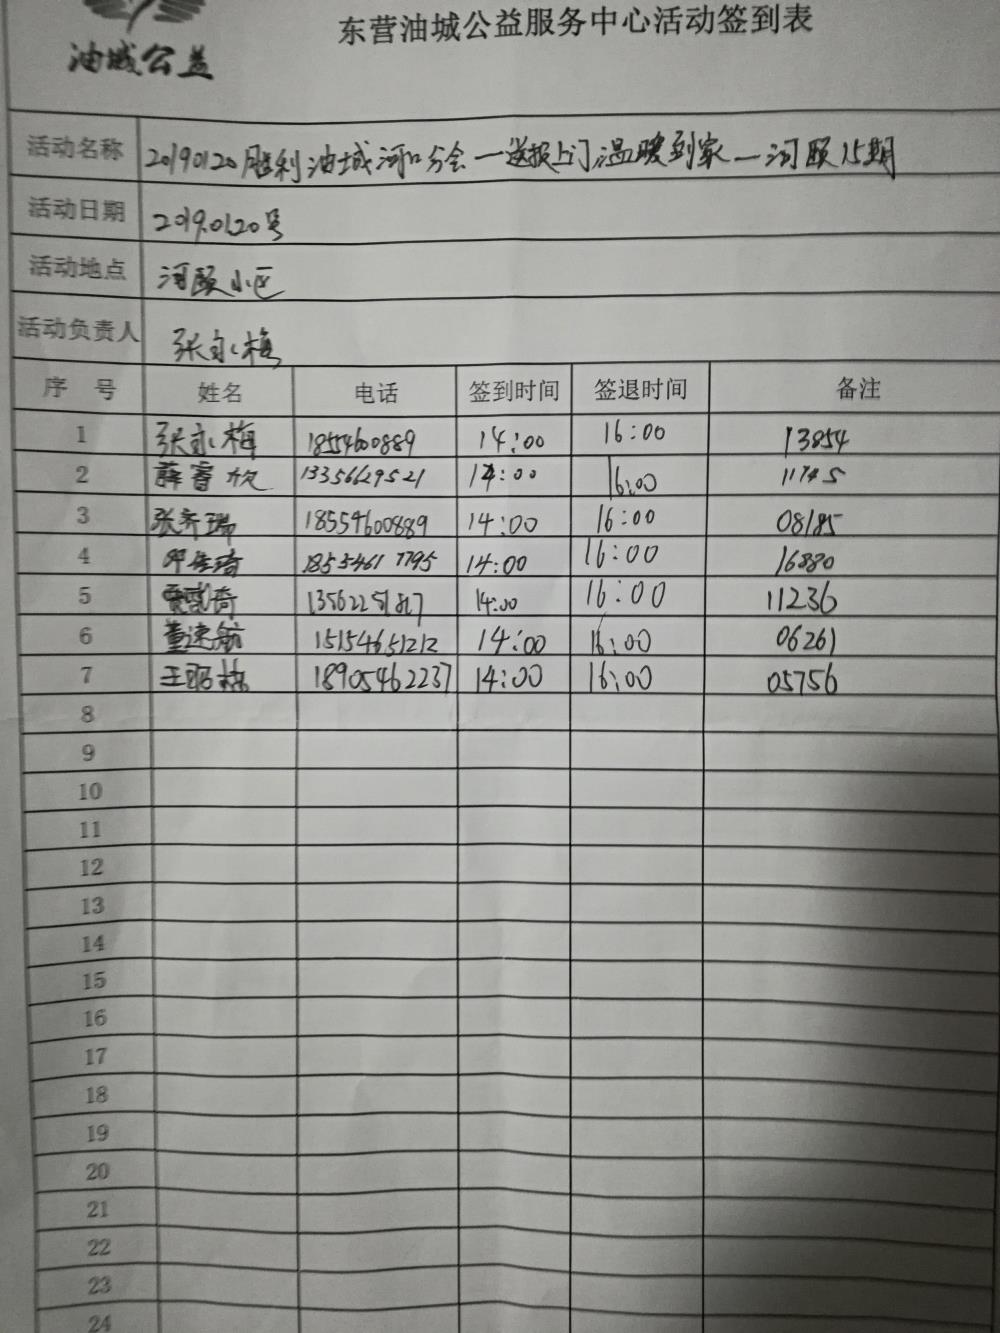 东营油城公益服务中心活动签到表
油城公益
活动名称 20190120胜利油城河口分会一送报上门温暖到家一河颐15期
活动日期 2019.01.20号
活动地点 河颐小区
活动负责人 张永梅
序 号 姓名 电话 签到时间 签退时间 备注
1 张永梅 18554600889 14:00 16:00 13854
2 薛睿欣 13356629521 14:00 16:00 11745
3 张齐瑞 18554600889 14:00 16:00 08185
4 18554617795 14:00 16:00 16880
5 14:00 16:00 11236
6 董速航 15154651212 14:00 16:00 06261
7 18905462237 14:00 16:00 05756
8
9
10
11
12
13
14
15
16
17
18
19
20
21
22
23
24